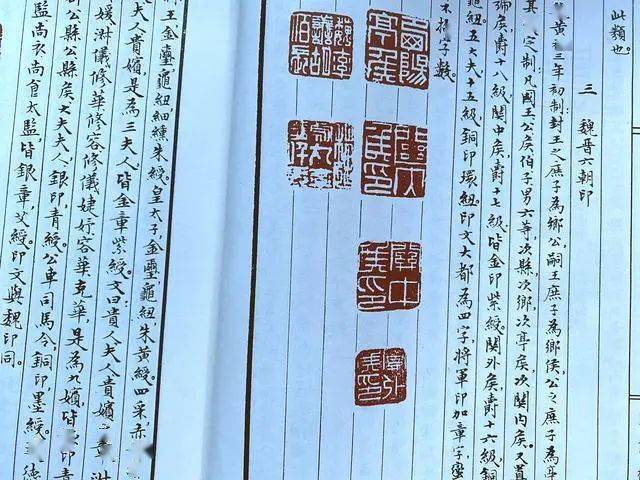 此類也。
三 魏晋六朝印
黄初三年初制封王之庶子為鄉公，嗣王庶子為鄉侯，公之庶子為亭
其 定制凡國王公矦伯子男六等，次縣次鄉次亭矦次関内矦。又置
號矦爵十八級，関中矦，爵十七級皆金印紫綬。関外矦爵十六級銅
紐，五大夫十五級，銅印環紐。印文大都為四字，將軍印加章字，蠻
字數。
亭矦
矦印
関中矦印
関外矦印
魏率善胡佰長
王金璽，龜紐細纁朱綬。皇太子，金璽，龜紐，朱黄綬四采，赤
夫人貴嬪，是為三夫人皆金章紫綬。文曰貴人夫人貴嬪之章，淋
媛，淋儀修華修容修儀婕妤容華充華，是為九嬪，皆 印青
公縣公縣矦 夫夫人，銀印，青綬。公車司馬令，銅印，墨綬。 德
監尚衣尚食太監皆銀章，艾綬。印文與魏印同。